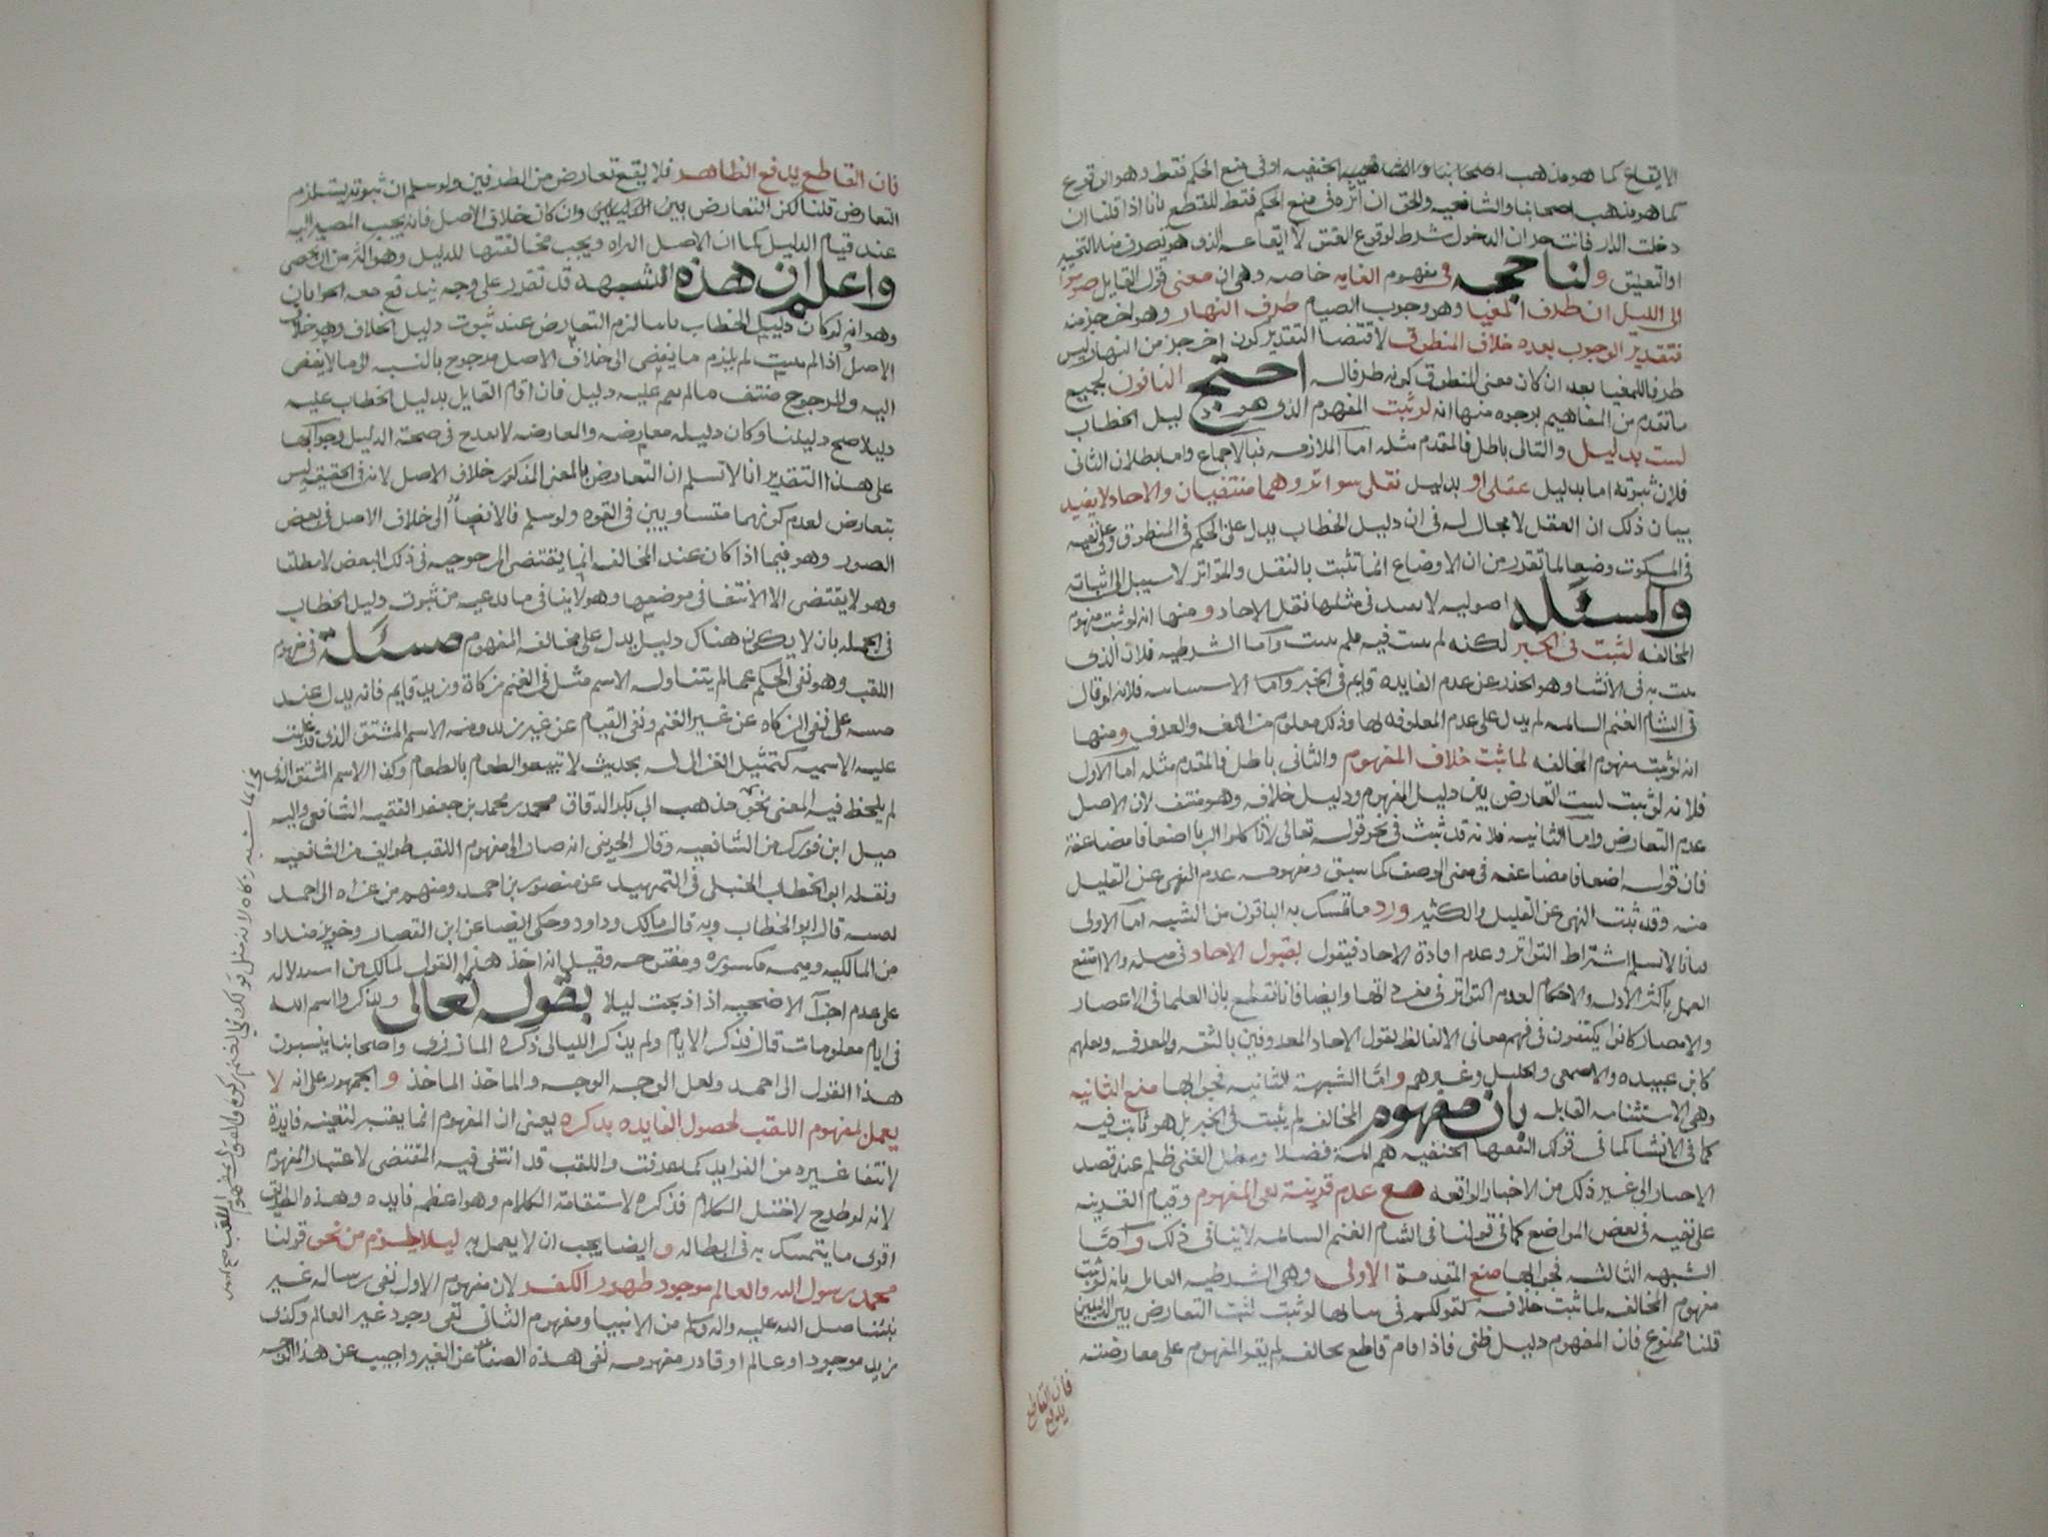 الايقاع كما هو مذهب اصحابنا والشافعيه الحنفيه او في منع الحكم فقط وهو الوقوع
كما هو مذهب اصحابنا والشافعيه والحق ان اثره في منع الحكم فقط للقطع بانا اذا قلنا ان
دخلت الدار فانت حر ان الدخول شرط لوقوع العتق لا ايقاعه الذي هو تصرف منه التخيير
او التعليق ولنا حجه في مفهوم الغايه خاصه وهي ان معنى قول القايل صوموا
الى الليل ان طرف المغيا وهو وجوب الصيام طرف النهار وهو اخر جز منه
فتقدير الوجوب بعده خلاف المنطوق لاقتضا التقدير كون اخر جز من النهار ليس
طرفا للمغيا بعد ان كان معنى المنطوق كونه طرفا له احتج النافون لجميع
ما تقدم من المفاهيم بوجوه منها انه لو ثبت المفهوم الذي هو دليل الخطاب
لثبت بدليل والتالي باطل فالمقدم مثله اما الملازمه فبالاجماع واما بطلان الثاني
فلان ثبوته اما بدليل عقلي او بدليل نقلي متواتر وهما منتفيان والاحاد لا يفيد
بيان ذلك ان العقل لا مجال له في ان دليل الخطاب يدل على الحكم في المنطوق وعلى نفيه
في المسكوت وضعا لما تقدر من ان الاوضاع انما تثبت بالنقل والمتواتر لا سبيل الى اثباته
والمسئله اصوليه لا يفيد في مثلها نقل الاحاد ومنها انه لو ثبت مفهوم
المخالفه لثبت في الخبر لكنه لم يثبت فيه فلم يثبت واما الشرطيه فلان الذي
يثبت به في الانشا وهو الحذر عن عدم الفايده قايم في الخبر واما الاستثناييه فلانه لو قال
في الشام الغنم السائمه لم يدل على عدم المعلوفه لها وذلك معلوم من اللغه والعرف ومنها
انه لو ثبت مفهوم المخالفه لما ثبت خلاف المفهوم والثاني باطل فالمقدم مثله اما الاول
فلانه لو ثبت لثبت التعارض بين دليل المفهوم ودليل خلافه وهو منتف لان الاصل
عدم التعارض واما الثانيه فلانه قد ثبت في نحو قوله تعالى لا تاكلوا الربا اضعافا مضاعفة
فان قوله اضعافا مضاعفه في معنى الوصف كما سبق ومفهومه عدم النهي عن القليل
منه وقد ثبت النهي عن القليل والكثير ورد ما تمسك به النافون من الشبه اما الاولى
فبانا لا نسلم اشتراط التواتر وعدم افادة الاحاد فيقول بقبول الاحاد في مثله والا امتنع
العمل باكثر الادله والاحكام لعدم التواتر في مفرداتها وايضا فانا نقطع بان العلما في الاعصار
والامصار كانوا يكتفون في فهم معاني الالفاظ بقول الاحاد المعروفين بالثقه والمعرفه وبعلهم
كابن عبيده والاصمعي والخليل وغيرهم واما الشبهة الثانيه فجوابها منع الثانيه
وهي الاستثنائيه القايله بان مفهوم المخالفه لم يثبت في الخبر بل هو ثابت فيه
كما في الانشا كما في قولك الفقها الحنفيه هم ائمة فضلا ومطل الغني ظلم عند قصد
الاحبار الى غير ذلك من الاخبار الواقعه مع عدم قرينة نفي المفهوم وقيام القرينه
على نفيه في بعض المواضع كما في قولنا في الشام الغنم السائمه لا ينافي ذلك واما
الشبهه الثالثه فجوابها منع المقدمة الاولى وهي الشرطيه القايله بانه لو ثبت
مفهوم المخالفه لما ثبت خلافه كقولكم في بيانها لو ثبت لثبت التعارض بين الدليلين
قلنا ممنوع فان المفهوم دليل ظني فاذا قام قاطع بخالفه لم يقو المفهوم على معارضته
فان القاطع
يدفع
فان القاطع يدفع الظاهر فلا يقع تعارض من الطرفين ولو سلم ان ثبوته يستلزم
التعارض قلنا لكن التعارض بين الدليلين وان كان خلاف الاصل فانه يجب المصير اليه
عند قيام الدليل كما ان الاصل البراه ويجب مخالفتها للدليل وهو اكثر من ان يحصى
واعلم ان هذه الشبهة قد تقرر على وجه يندفع معه الجوابان
وهو انه لو كان دليل الخطاب ثابتا لزم التعارض عند ثبوت دليل الخلاف وهو خلاف
الاصل واذا لم يثبت لم يلزم ما يفضى الى خلاف الاصل مرجوح بالنسبه الى ما لا يفضى
اليه والمرجوح منتف ما لم يقم عليه دليل فان اقام القايل بدليل الخطاب عليه
دليلا صح دليلنا وكان دليله معارضه والمعارضه لا تقدح في صحة الدليل وجوابها
على هذا التقدير انا لا نسلم ان التعارض بالمعنى المذكور خلاف الاصل لانه في الحقيقه ليس
بتعارض لعدم كونهما متساويين في القوه ولو سلم فالافضا الى خلاف الاصل في بعض
الصور وهو فيما اذا كان عند المخالفه انما يقتضى المرجوحيه في ذلك البعض لا مطلقا
وهو لا يقتضى الا الانتفا في موضعها وهو لا ينافي ما ندعيه من ثبوت دليل الخطاب
في الجمله بان لا يكون هناك دليل يدل على مخالفه المفهوم مسئلة في مفهوم
اللقب وهو نفي الحكم عما لم يتناوله الاسم مثل في الغنم زكاة وزيد قايم فانه يدل عند
مثبته على نفي الزكاه عن غير الغنم ونفي القيام عن غير زيد ومنه الاسم المشتق الذي قد غلبت
عليه الاسميه كتمثيل الغزالي له بحديث لا تبيعوا الطعام بالطعام وكذا الاسم المشتق الذي
لم يلحظ فيه المعنى نحو مذهب ابي بكر الدقاق محمد بن محمد بن جعفر الفقيه الشافعي واليه
ميل ابن فورك من الشافعيه وقال الجويني انه صار الى مفهوم اللقب طوايف من الشافعيه
ونقله ابو الخطاب الحنبلي في التمهيد عن منصور بن احمد ومنهم من عزاه الى احمد
نفسه قال ابو الخطاب وبه قال مالك وداود وحكى ايضا عن ابن القصار وخويز منداد
من المالكيه وميمه مكسوره ومفتوحه وقيل انه اخذ هذا القول لمالك من استدلاله
على عدم اجزآ الاضحيه اذا ذبحت ليلا بقوله تعالى ويذكروا اسم الله
في ايام معلومات قال فذكر الايام ولم يذكر الليالي ذكره المازري واصحابنا ينسبون
هذا القول الى احمد ولعل الوجه الوجه والماخذ الماخذ والجمهور على انه لا
يعمل بمفهوم اللقب لحصول الفايده بذكره يعني ان المفهوم انما يعتبر لتعينه فايدة
لانتفا غيره من الفوايد كما عرفت واللقب قد انتفى فيه المقتضى لاعتبار المفهوم
لانه لو طرح لاختل الكلام فذكره لاستقامة الكلام وهو اعظم فايده وهذه الطريق
اقوى ما يتمسك به في ابطاله وايضا يجب ان لا يعمل به ليلا يلزم من نحو قولنا
محمد رسول الله والعالم موجود ظهور الكفر لان مفهوم الاول نفي رساله غير
نبينا صلى الله عليه واله وسلم من الانبيا ومفهوم الثاني نفي وجود غير العالم وكذى
زيد موجود او عالم او قادر مفهومه نفي هذه الصفات عن الغير واجيب عن هذا الوجه
نحو الماشيه زكاه لانه مثل قولك في الغنم زكوه والقول بمفهوم اللقب